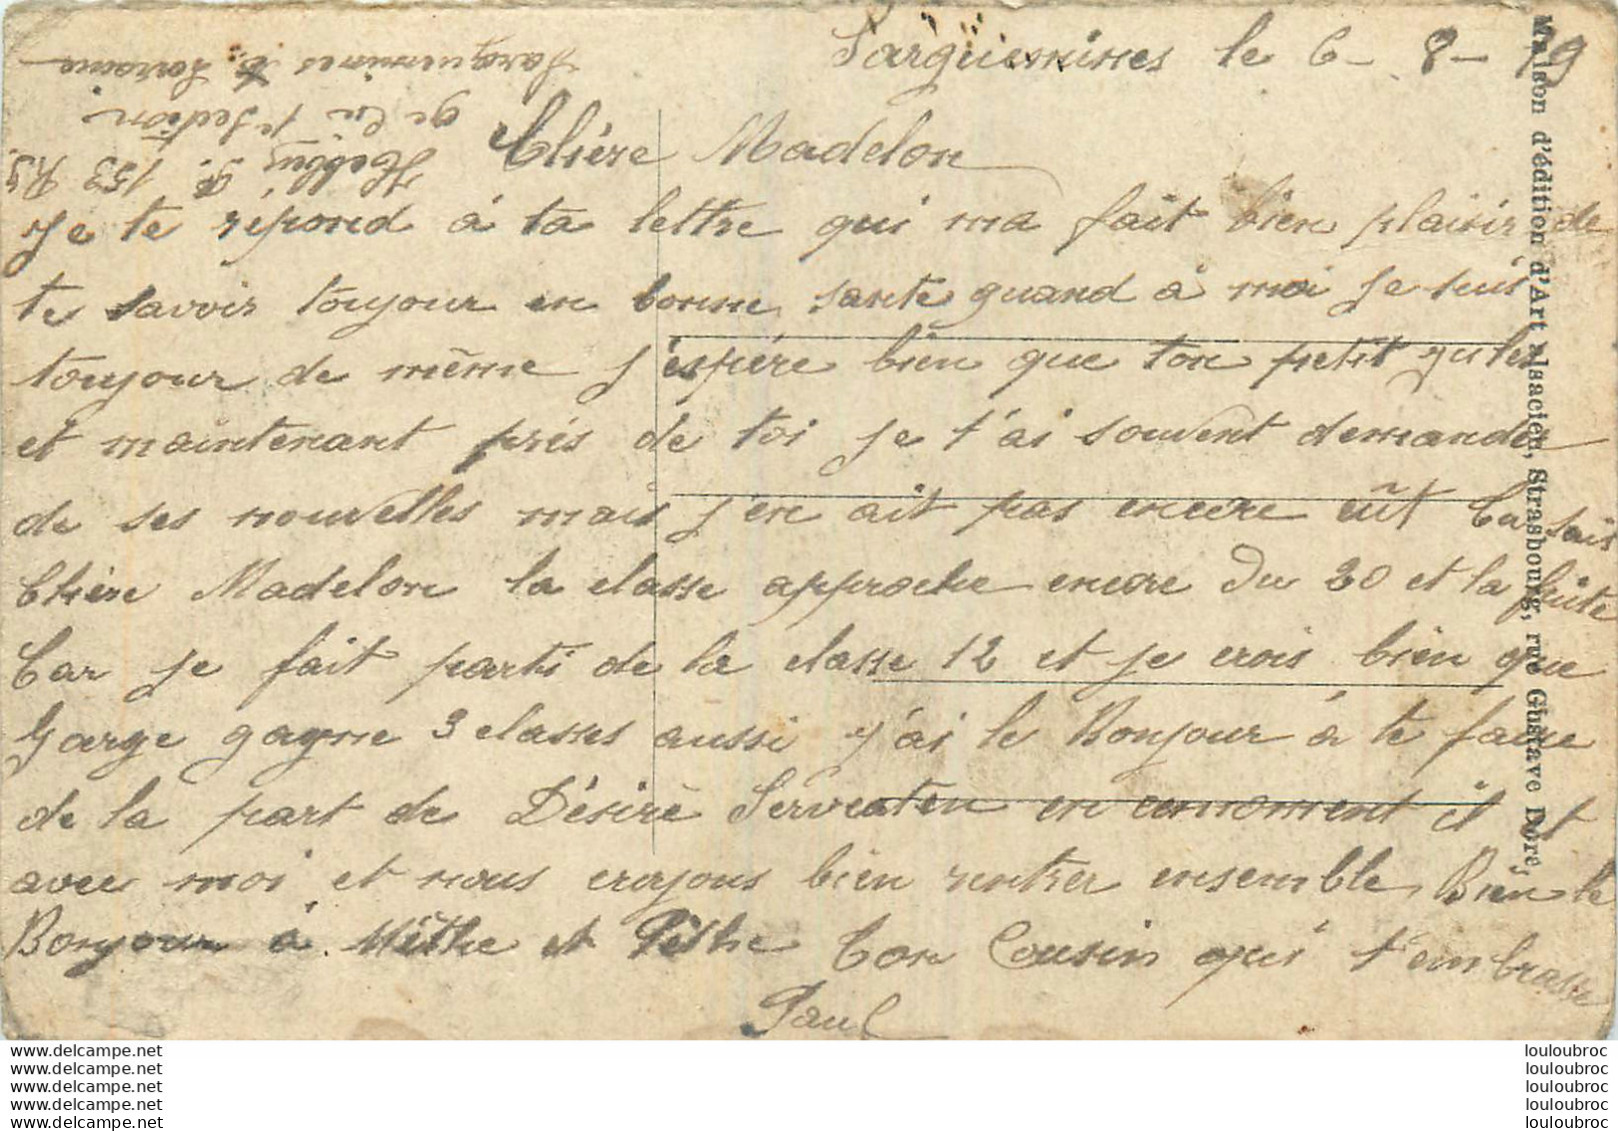 Sargüemines le 6 - 8 - 19
Chère Madelon
Je te répond à ta lettre qui ma fait bien plaisir de
te savoir toujour en bonne sante quand à moi je suis
toujour de même j'espère bien que ton petit jules
et maintenant près de toi je t'ai souvent demander
de ses nouvelles mais j'en ait pas encore eût Ca sais
Chère Madelon la classe approche encore du 20 et la fuite
Car je fait parti de la classe 12 et je crois bien que
gagne 3 classes aussi j'ai le Bonjour à te faire
de la part de Désiré en cemoment il et
avec moi et nous croyons bien rentrer ensemble Bien le
Bonjour à Mèthe et Pèthe Ton Cousin qui t'embrasse
Paul
P. 153 R.I.
9e Cie 1e Section
Sarguemines Lorraine
Maison d'édition d'Art alsacien, Strasbourg, rue Gustave Doré,
www.delcampe.net
www.delcampe.net
www.delcampe.net
www.delcampe.net
www.delcampe.net
louloubroc
louloubroc
louloubroc
louloubroc
louloubroc